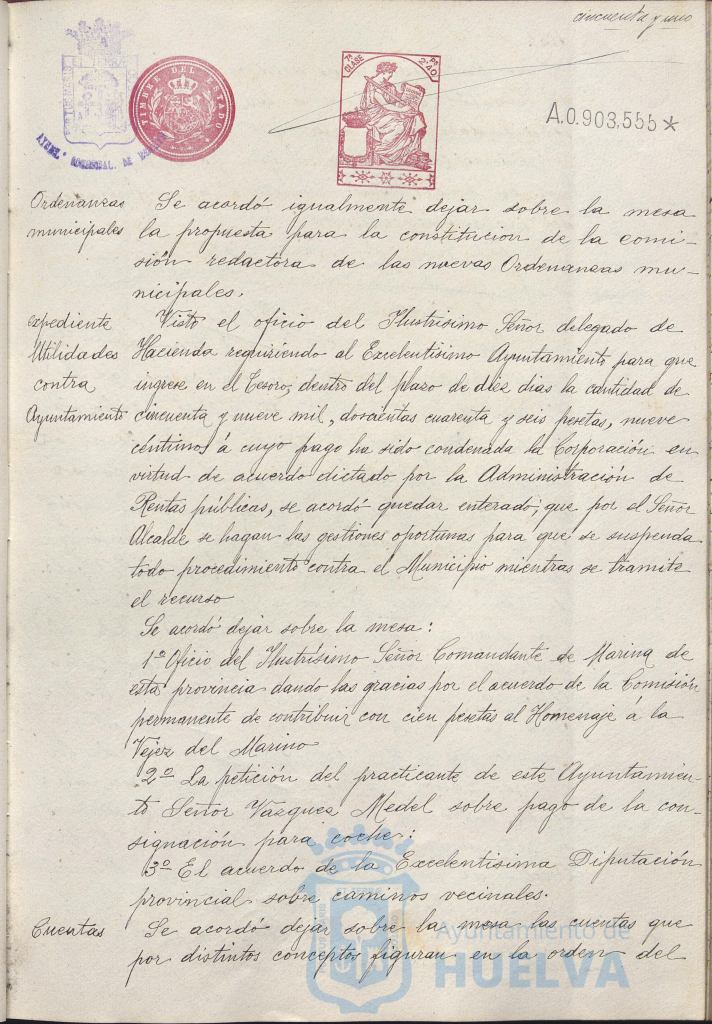 cincuenta y uno
TIMBRE DEL ESTADO
7ª CLASE
Ps 2'40
A.0.903,555*
AYUNT. DE
Ordenanzas municipales
Se acordó igualmente dejar sobre la mesa
la propuesta para la constitucion de la comi-
sión redactora de las nuevas Ordenanzas mu-
nicipales.
expediente Utilidades contra Ayuntamiento
Visto el oficio del Ilustrisimo Señor delegado de
Hacienda requiriendo al Excelentisimo Ayuntamiento para que
ingrese en el Tesoro, dentro del plazo de diez dias la cantidad de
cincuenta y nueve mil, doscientas cuarenta y seis pesetas, nueve
centimos á cuyo pago ha sido condenada la Corporación en
virtud de acuerdo dictado por la Administración de
Rentas públicas, se acordó quedar enterado; que por el Señor
Alcalde se hagan las gestiones oportunas para que se suspenda
todo procedimiento contra el Municipio mientras se tramite
el recurso
Se acordó dejar sobre la mesa:
1º Oficio del Ilustrísimo Señor Comandante de Marina de
esta provincia dando las gracias por el acuerdo de la Comisión
permanente de contribuir con cien pesetas al Homenaje á la
Vejez del Marino
2º La petición del practicante de este Ayuntamien-
to Señor Vázquez Medel sobre pago de la con-
signación para coche:
3º El acuerdo de la Excelentisima Diputación
provincial sobre caminos vecinales.
Cuentas
Se acordó dejar sobre la mesa las cuentas que
por distintos conceptos figuran en la orden del
Ayuntamiento de
HUELVA